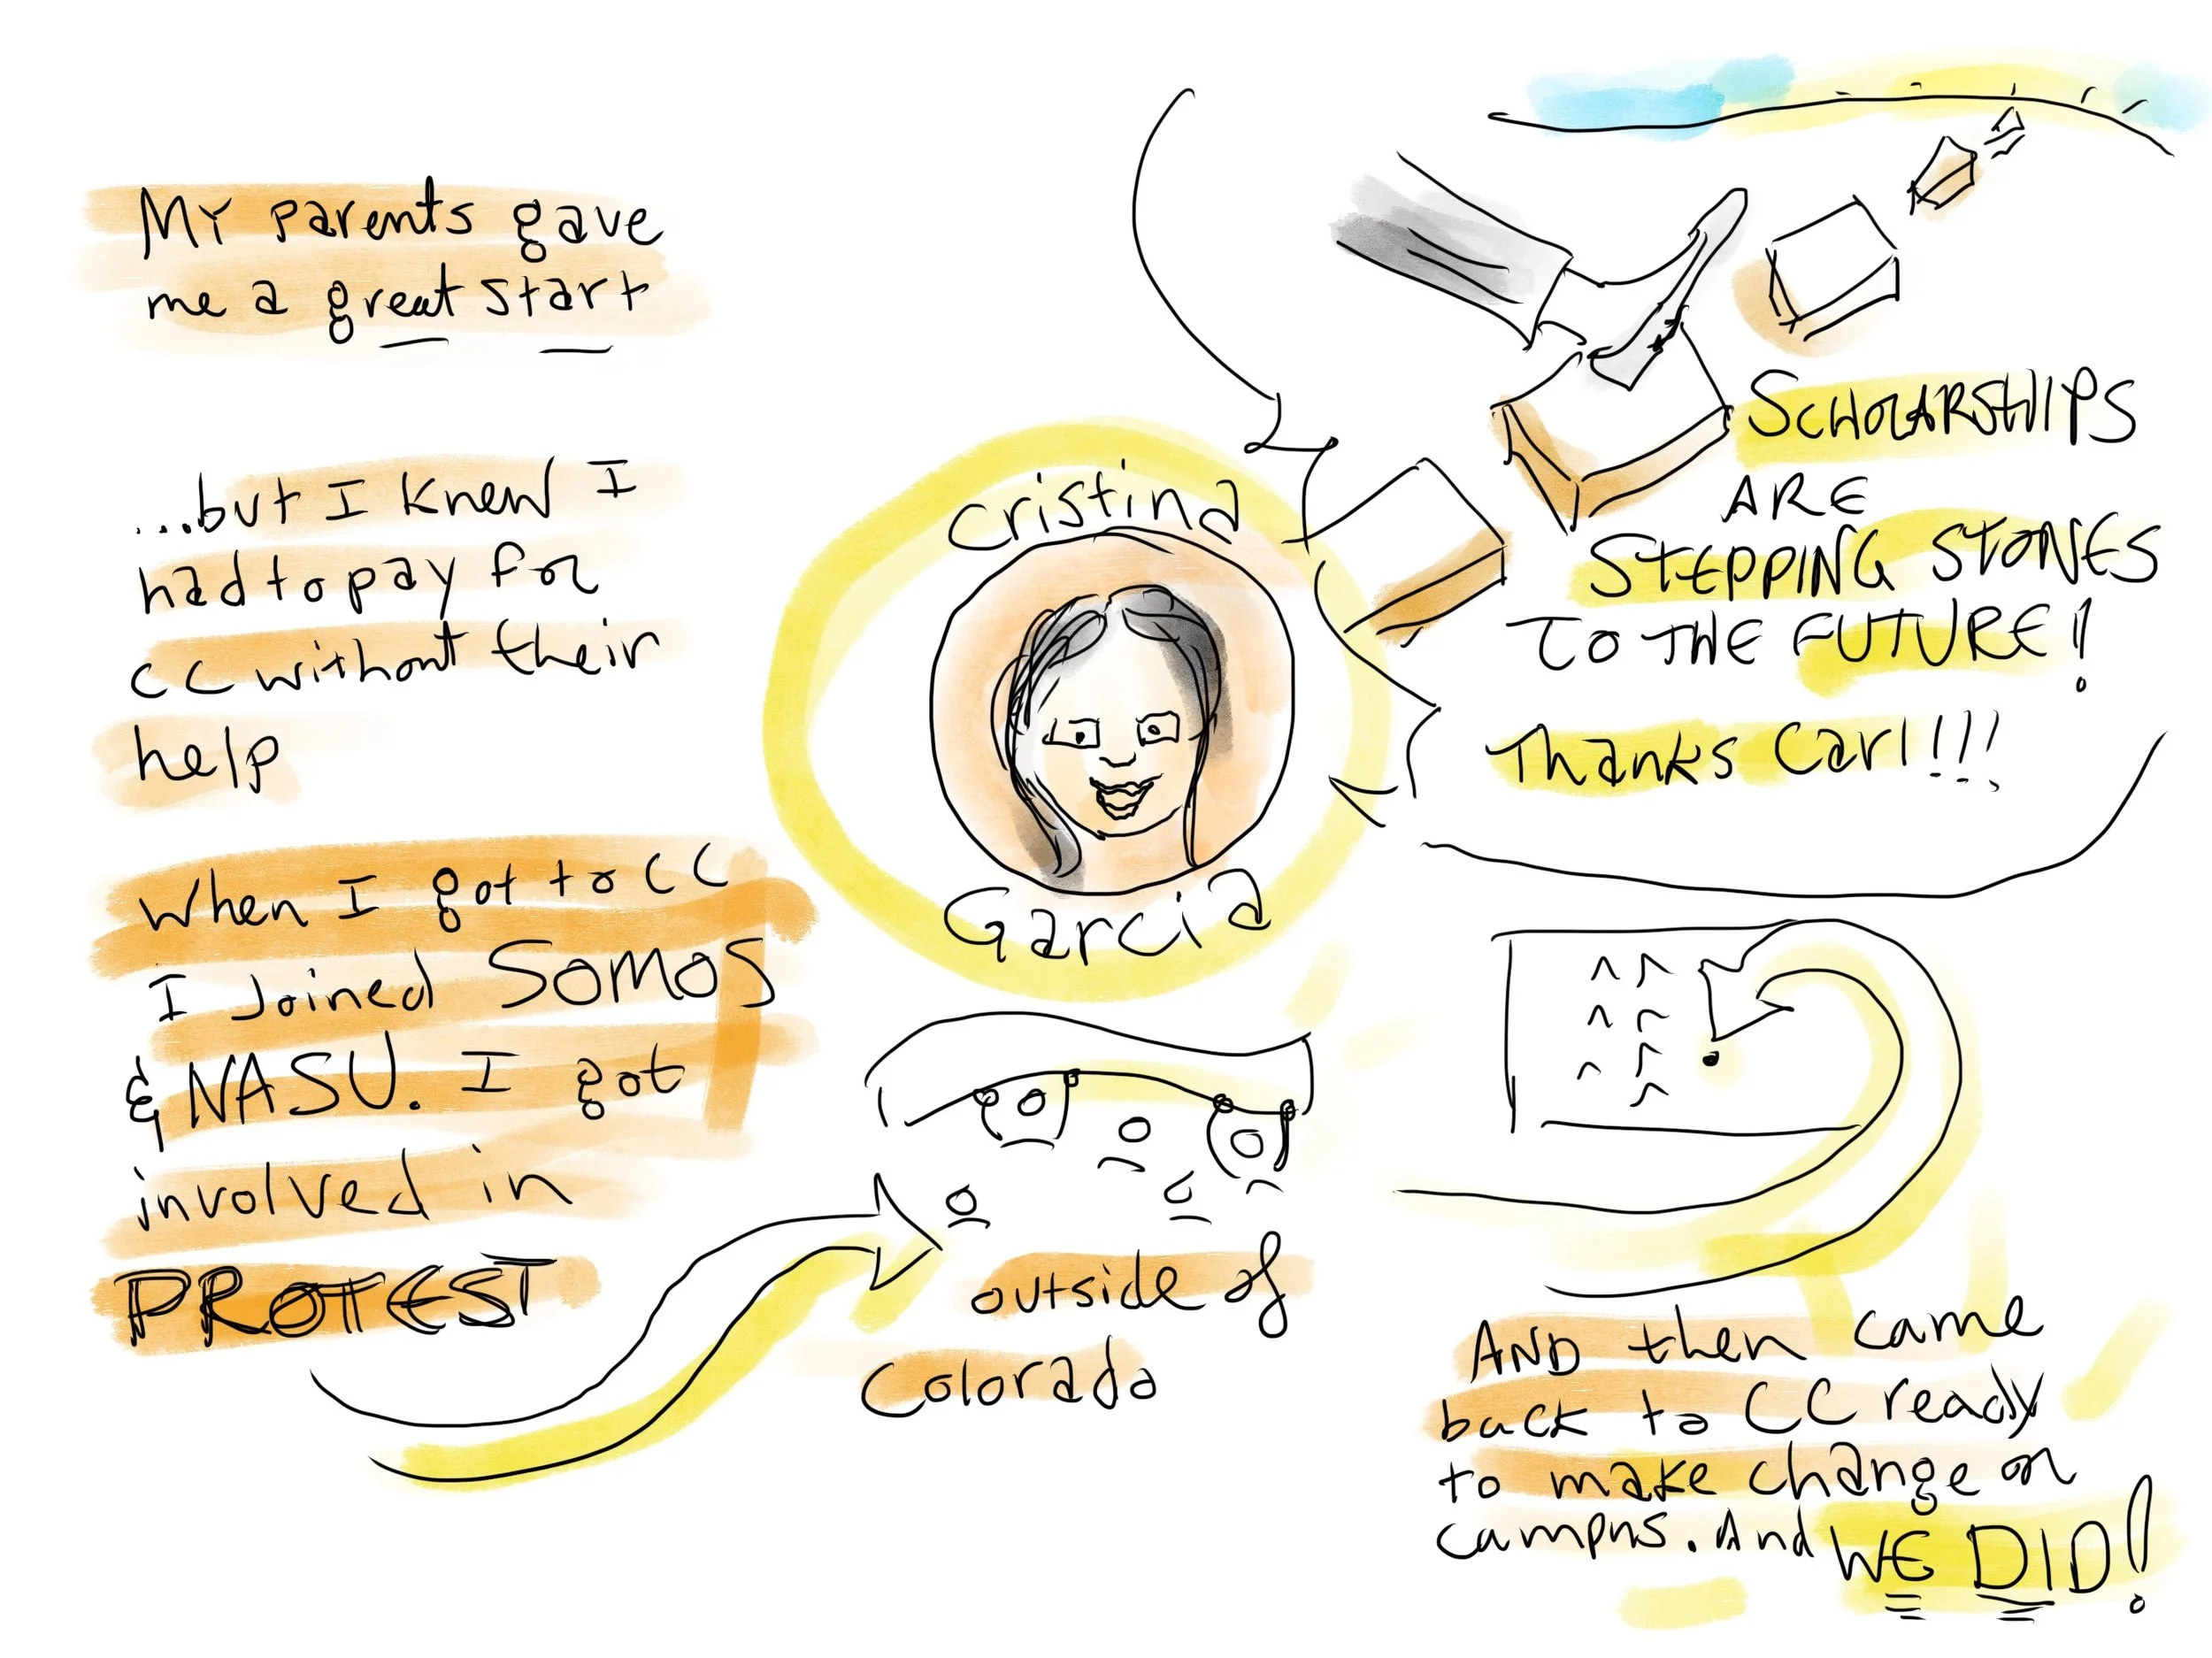 My parents gave
me a great start
...but I knew I
had to pay for
CC without their
help
When I got to CC
I Joined SOMOS
& NASU. I got
involved in
PROTEST
outside of
Colorado
cristina
Garcia
SCHOLARSHIPS
ARE
STEPPING STONES
TO THE FUTURE!
Thanks Carl!!!
AND then came
back to CC ready
to make change on
campus. And WE DID!